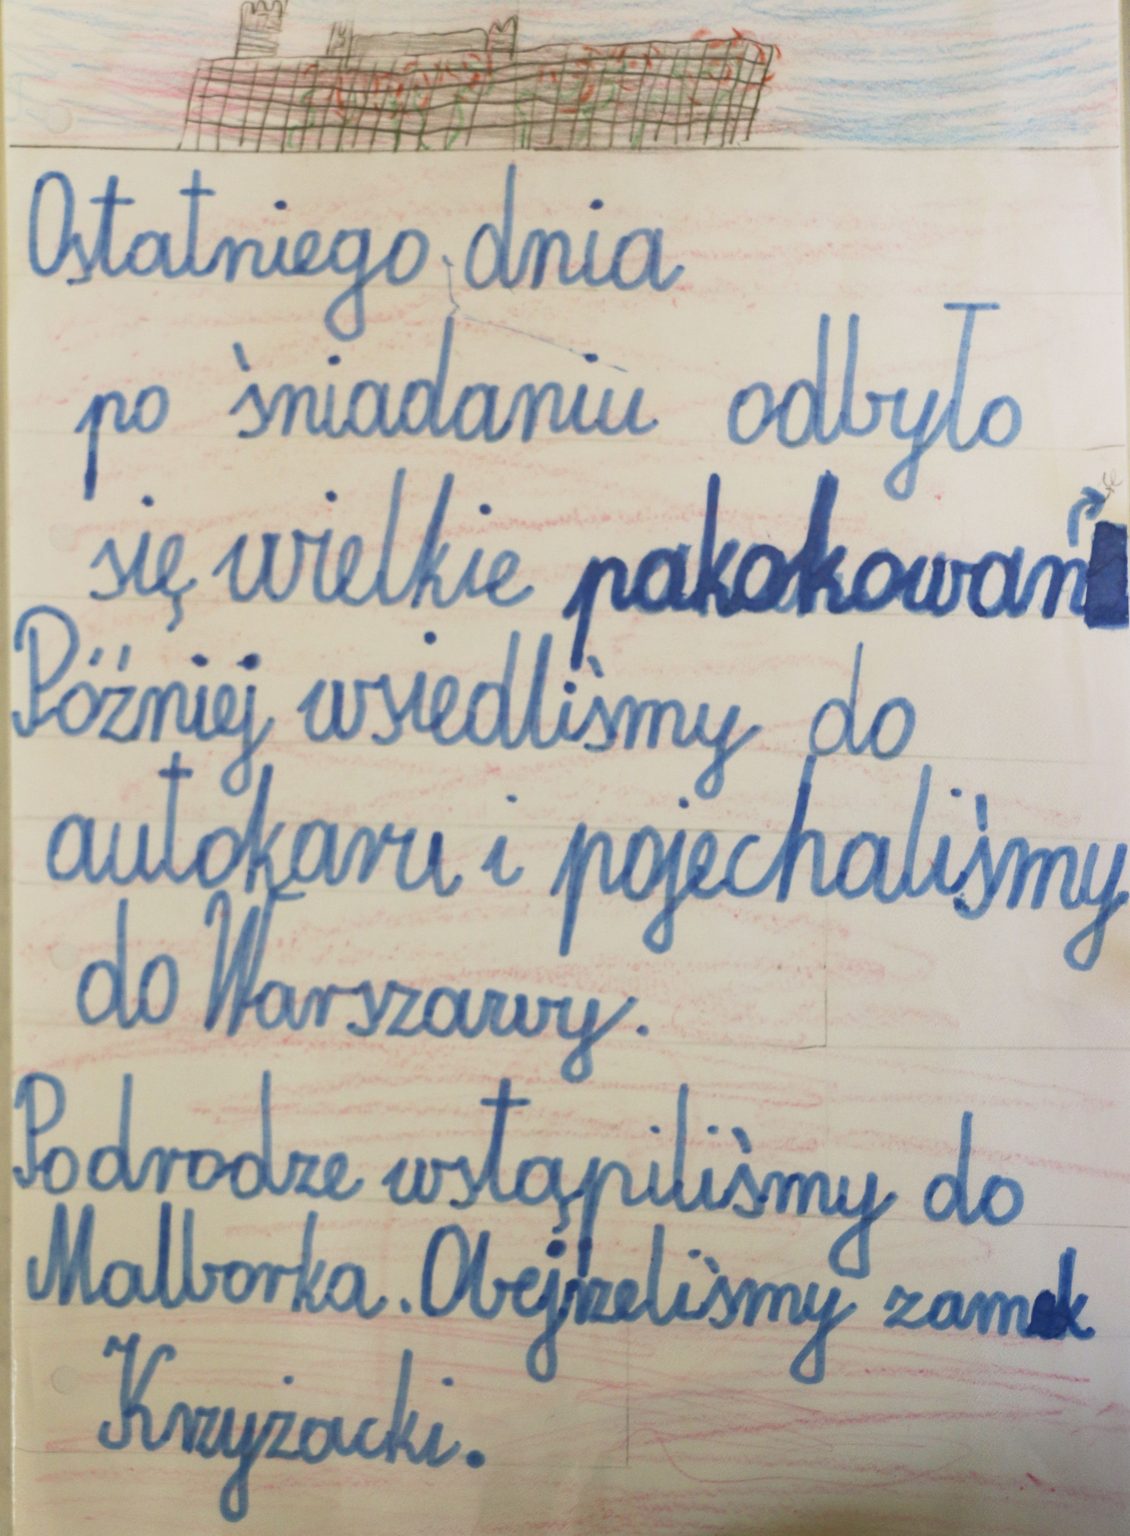 Ostatniego dnia
po śniadaniu odbyło
się wielkie pakokowań
Później wsiedliśmy do
autokaru i pojechaliśmy
do Warszawy.
Podrodze wstąpiliśmy do
Malborka. Obejrzeliśmy zamek
Krzyżacki.